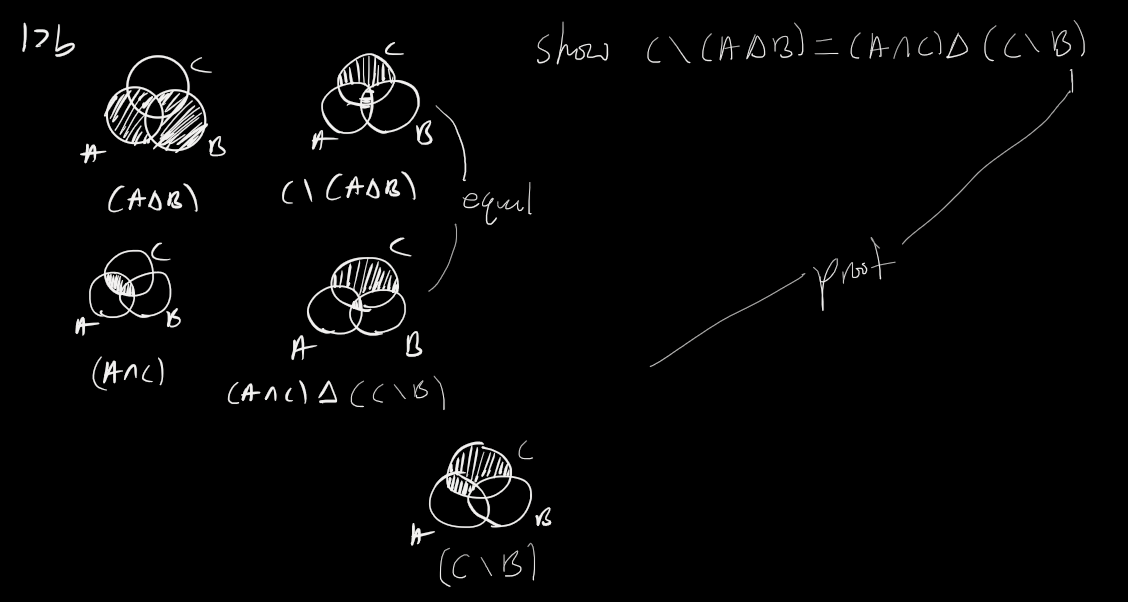 17b
show C \ (A Δ B) = (A ∩ C) Δ (C \ B)
C
A
B
(A Δ B)
C
A
B
C \ (A Δ B)
equal
C
A
B
(A ∩ C)
C
A
B
(A ∩ C) Δ (C \ B)
proof
C
A
B
(C \ B)